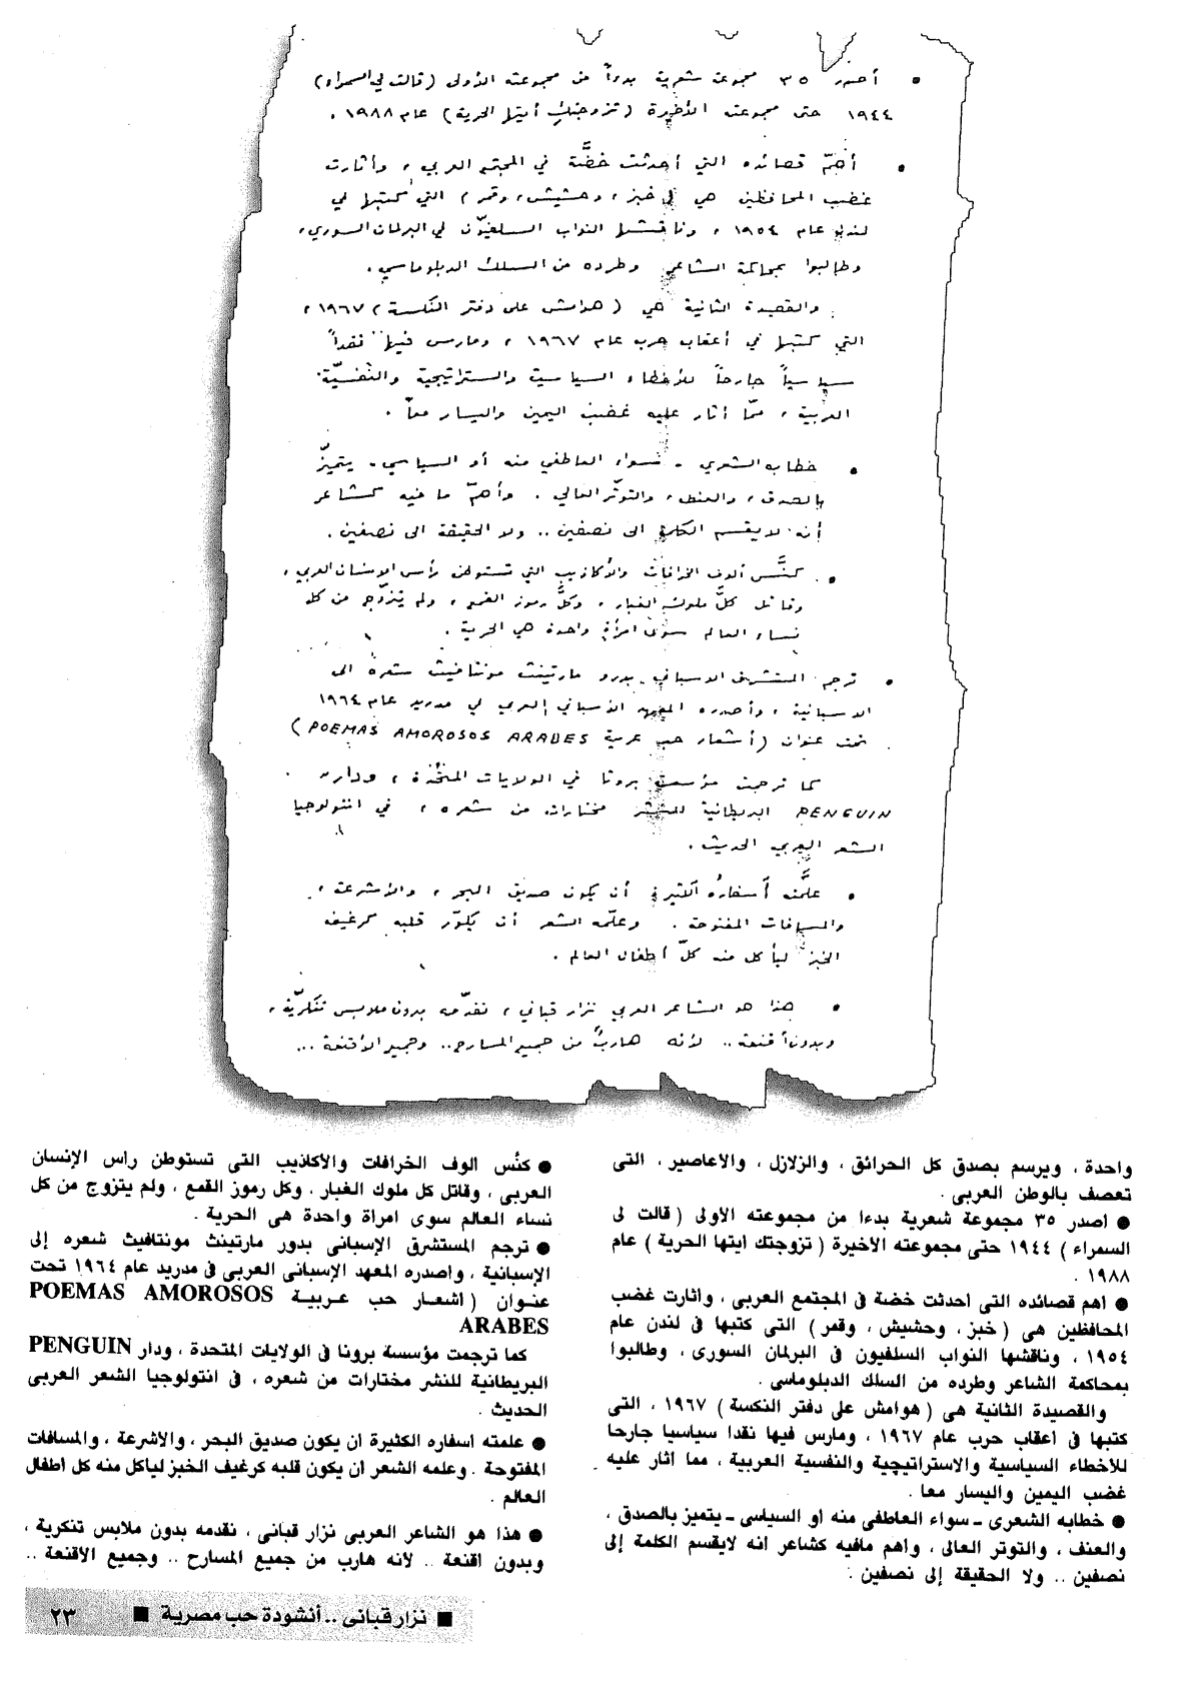 • أصدر ٣٥ مجموعة شعرية بدءاً من مجموعته الأولى (قالت لي السمراء)
١٩٤٤ حتى مجموعته الأخيرة (تزوجتكِ أيتها الحرية) عام ١٩٨٨.
• أهمّ قصائده التي أحدثت خضَّة في المجتمع العربي، وأثارت
غضب المحافظين هي (خبز، وحشيش، وقمر) التي كتبها في
لندن عام ١٩٥٤، وناقشها النواب السلفيّون في البرلمان السوري،
وطالبوا بمحاكمة الشاعر وطرده من السلك الدبلوماسي.
والقصيدة الثانية هي (هوامش على دفتر النكسة) ١٩٦٧،
التي كتبها في أعقاب حرب عام ١٩٦٧، ومارس فيها نقداً
سياسياً جارحاً للأخطاء السياسية والستراتيجية والنفسيّة
العربية، ممّا أثار عليه غضب اليمين واليسار معاً.
• خطابه الشعري - سواء العاطفي منه أو السياسي - يتميّز
بالصدق، والعنف، والتوتّر العالي. وأهمّ ما فيه كشاعر
أنه لا يقسم الكلمة الى نصفين .. ولا الحقيقة الى نصفين.
• كنَّس ألوف الخرافات والأكاذيب التي تستوطن رأس الإنسان العربي،
وقاتل كلَّ ملوك الغبار، وكلَّ رموز القمع، ولم يتزوّج من كل
نساء العالم سوى امرأةٍ واحدة هي الحرية.
• ترجم المستشرق الاسباني بدرو مارتينث مونتافيث شعره الى
الاسبانية، وأصدره المعهد الاسباني العربي في مدريد عام ١٩٦٤
تحت عنوان (أشعار حب عربية POEMAS AMOROSOS ARABES)
كما ترجمت مؤسسة بروتا في الولايات المتّحدة، ودار
PENGUIN البريطانية للنشر مختارات من شعره، في انتولوجيا
الشعر العربي الحديث.
• علَّمته أسفارُه الكثيرة أن يكون صديق البحر، والأشرعة،
والمسافات المفتوحة. وعلّمه الشعر أن يكوّر قلبه كرغيف
الخبز ليأكل منه كلّ أطفال العالم.
• هذا هو الشاعر العربي نزار قباني، نقدّمه بدون ملابس تنكريّة،
وبدون أقنعة .. لأنه هاربٌ من جميع المسارح .. وجميع الأقنعة ...
واحدة ، ويرسم بصدق كل الحرائق ، والزلازل ، والأعاصير ، التى
تعصف بالوطن العربى .
● أصدر ٣٥ مجموعة شعرية بدءا من مجموعته الأولى ( قالت لى
السمراء ) ١٩٤٤ حتى مجموعته الأخيرة ( تزوجتك أيتها الحرية ) عام
١٩٨٨ .
● أهم قصائده التى أحدثت خضة فى المجتمع العربى ، وأثارت غضب
المحافظين هى ( خبز ، وحشيش ، وقمر ) التى كتبها فى لندن عام
١٩٥٤ ، وناقشها النواب السلفيون فى البرلمان السورى ، وطالبوا
بمحاكمة الشاعر وطرده من السلك الدبلوماسى .
والقصيدة الثانية هى ( هوامش على دفتر النكسة ) ١٩٦٧ ، التى
كتبها فى أعقاب حرب عام ١٩٦٧ ، ومارس فيها نقدا سياسيا جارحا
للأخطاء السياسية والاستراتيجية والنفسية العربية ، مما أثار عليه
غضب اليمين واليسار معا .
● خطابه الشعرى ـ سواء العاطفى منه أو السياسى ـ يتميز بالصدق ،
والعنف ، والتوتر العالى ، وأهم مافيه كشاعر أنه لايقسم الكلمة إلى
نصفين .. ولا الحقيقة إلى نصفين .
● كنَّس ألوف الخرافات والأكاذيب التى تستوطن رأس الإنسان
العربى ، وقاتل كل ملوك الغبار ، وكل رموز القمع ، ولم يتزوج من كل
نساء العالم سوى امرأة واحدة هى الحرية .
● ترجم المستشرق الإسبانى بدور مارتينث مونتافيث شعره إلى
الإسبانية ، وأصدره المعهد الإسبانى العربى فى مدريد عام ١٩٦٤ تحت
عنوان ( أشعار حب عربية POEMAS AMOROSOS
ARABES
كما ترجمت مؤسسة برونا فى الولايات المتحدة ، ودار PENGUIN
البريطانية للنشر مختارات من شعره ، فى انتولوجيا الشعر العربى
الحديث .
● علمته أسفاره الكثيرة أن يكون صديق البحر ، والأشرعة ، والمسافات
المفتوحة . وعلمه الشعر أن يكون قلبه كرغيف الخبز ليأكل منه كل أطفال
العالم .
● هذا هو الشاعر العربى نزار قبانى ، نقدمه بدون ملابس تنكرية ،
وبدون أقنعة .. لأنه هارب من جميع المسارح .. وجميع الأقنعة ..
■ نزار قبانى .. أنشودة حب مصرية ■ ٢٣